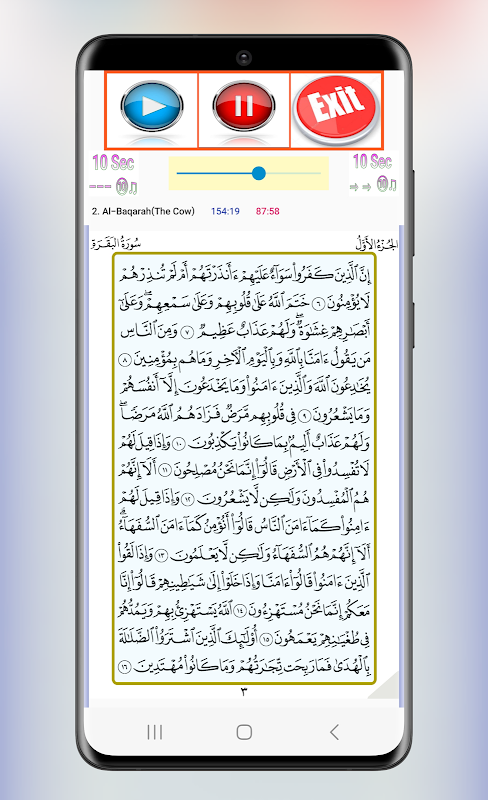 Exit
10 Sec
10 Sec
2. Al-Baqarah(The Cow) 154:19 87:58
سُورَةُ البَقَرَةِ الجُزْءُ الأَوَّلُ
إِنَّ ٱلَّذِينَ كَفَرُوا۟ سَوَآءٌ عَلَيْهِمْ ءَأَنذَرْتَهُمْ أَمْ لَمْ تُنذِرْهُمْ
لَا يُؤْمِنُونَ ٦ خَتَمَ ٱللَّهُ عَلَىٰ قُلُوبِهِمْ وَعَلَىٰ سَمْعِهِمْ ۖ وَعَلَىٰٓ
أَبْصَٰرِهِمْ غِشَٰوَةٌ ۖ وَلَهُمْ عَذَابٌ عَظِيمٌ ٧ وَمِنَ ٱلنَّاسِ
مَن يَقُولُ ءَامَنَّا بِٱللَّهِ وَبِٱلْيَوْمِ ٱلْءَاخِرِ وَمَا هُم بِمُؤْمِنِينَ ٨
يُخَٰدِعُونَ ٱللَّهَ وَٱلَّذِينَ ءَامَنُوا۟ وَمَا يَخْدَعُونَ إِلَّآ أَنفُسَهُمْ
وَمَا يَشْعُرُونَ ٩ فِى قُلُوبِهِم مَّرَضٌ فَزَادَهُمُ ٱللَّهُ مَرَضًا ۖ
وَلَهُمْ عَذَابٌ أَلِيمٌۢ بِمَا كَانُوا۟ يَكْذِبُونَ ١٠ وَإِذَا قِيلَ لَهُمْ
لَا تُفْسِدُوا۟ فِى ٱلْأَرْضِ قَالُوٓا۟ إِنَّمَا نَحْنُ مُصْلِحُونَ ١١ أَلَآ إِنَّهُمْ
هُمُ ٱلْمُفْسِدُونَ وَلَٰكِن لَّا يَشْعُرُونَ ١٢ وَإِذَا قِيلَ لَهُمْ
ءَامِنُوا۟ كَمَآ ءَامَنَ ٱلنَّاسُ قَالُوٓا۟ أَنُؤْمِنُ كَمَآ ءَامَنَ ٱلسُّفَهَآءُ ۗ
أَلَآ إِنَّهُمْ هُمُ ٱلسُّفَهَآءُ وَلَٰكِن لَّا يَعْلَمُونَ ١٣ وَإِذَا لَقُوا۟
ٱلَّذِينَ ءَامَنُوا۟ قَالُوٓا۟ ءَامَنَّا وَإِذَا خَلَوْا۟ إِلَىٰ شَيَٰطِينِهِمْ قَالُوٓا۟ إِنَّا
مَعَكُمْ إِنَّمَا نَحْنُ مُسْتَهْزِءُونَ ١٤ ٱللَّهُ يَسْتَهْزِئُ بِهِمْ وَيَمُدُّهُمْ
فِى طُغْيَٰنِهِمْ يَعْمَهُونَ ١٥ أُو۟لَٰٓئِكَ ٱلَّذِينَ ٱشْتَرَوُا۟ ٱلضَّلَٰلَةَ
بِٱلْهُدَىٰ فَمَا رَبِحَت تِّجَٰرَتُهُمْ وَمَا كَانُوا۟ مُهْتَدِينَ ١٦
٣